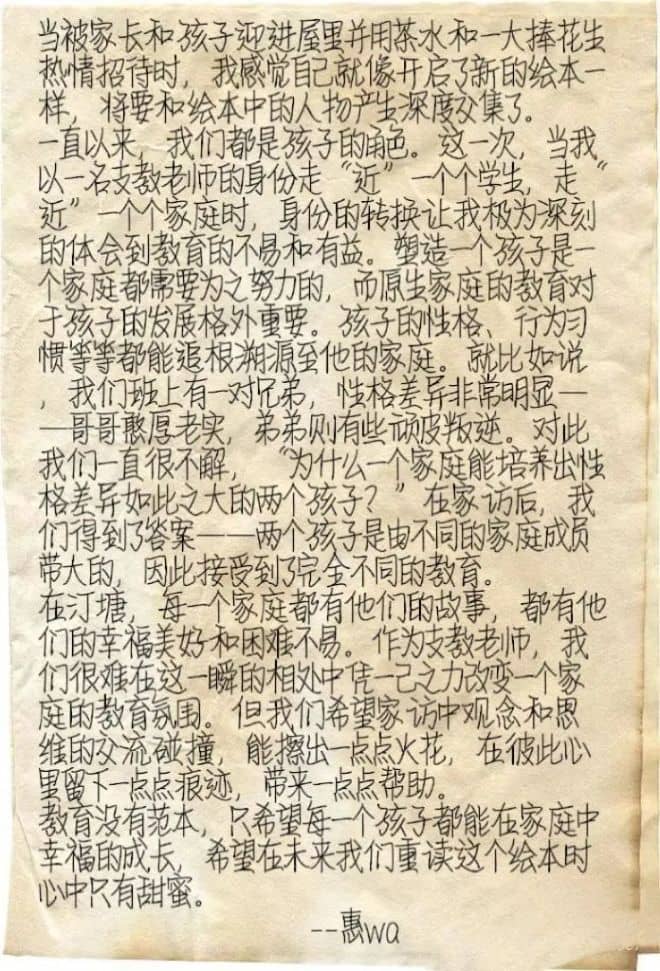 当被家长和孩子迎进屋里并用茶水和一大捧花生
热情招待时，我感觉自己就像开启了新的绘本一
样，将要和绘本中的人物产生深度交集了。
一直以来，我们都是孩子的角色。这一次，当我
以一名支教老师的身份走“近”一个个学生，走“
近”一个个家庭时，身份的转换让我极为深刻
的体会到教育的不易和有益。塑造一个孩子是一
个家庭都需要为之努力的，而原生家庭的教育对
于孩子的发展格外重要。孩子的性格、行为习
惯等等都能追根溯源至他的家庭。就比如说
，我们班上有一对兄弟，性格差异非常明显—
—哥哥憨厚老实，弟弟则有些顽皮叛逆。对此
我们一直很不解，“为什么一个家庭能培养出性
格差异如此之大的两个孩子？”在家访后，我
们得到了答案——两个孩子是由不同的家庭成员
带大的，因此接受到了完全不同的教育。
在汀塘，每一个家庭都有他们的故事，都有他
们的幸福美好和困难不易。作为支教老师，我
们很难在这一瞬的相处中凭一己之力改变一个家
庭的教育氛围。但我们希望家访中观念和思
维的交流碰撞，能擦出一点点火花，在彼此心
里留下一点点痕迹，带来一点点帮助。
教育没有范本，只希望每一个孩子都能在家庭中
幸福的成长，希望在未来我们重读这个绘本时
心中只有甜蜜。
--惠wa